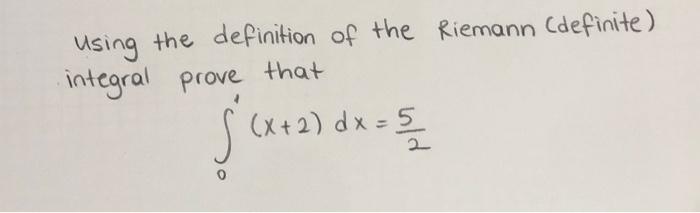 Using the definition of the Riemann (definite)
integral prove that
∫₀¹ (x+2) dx = 5/2